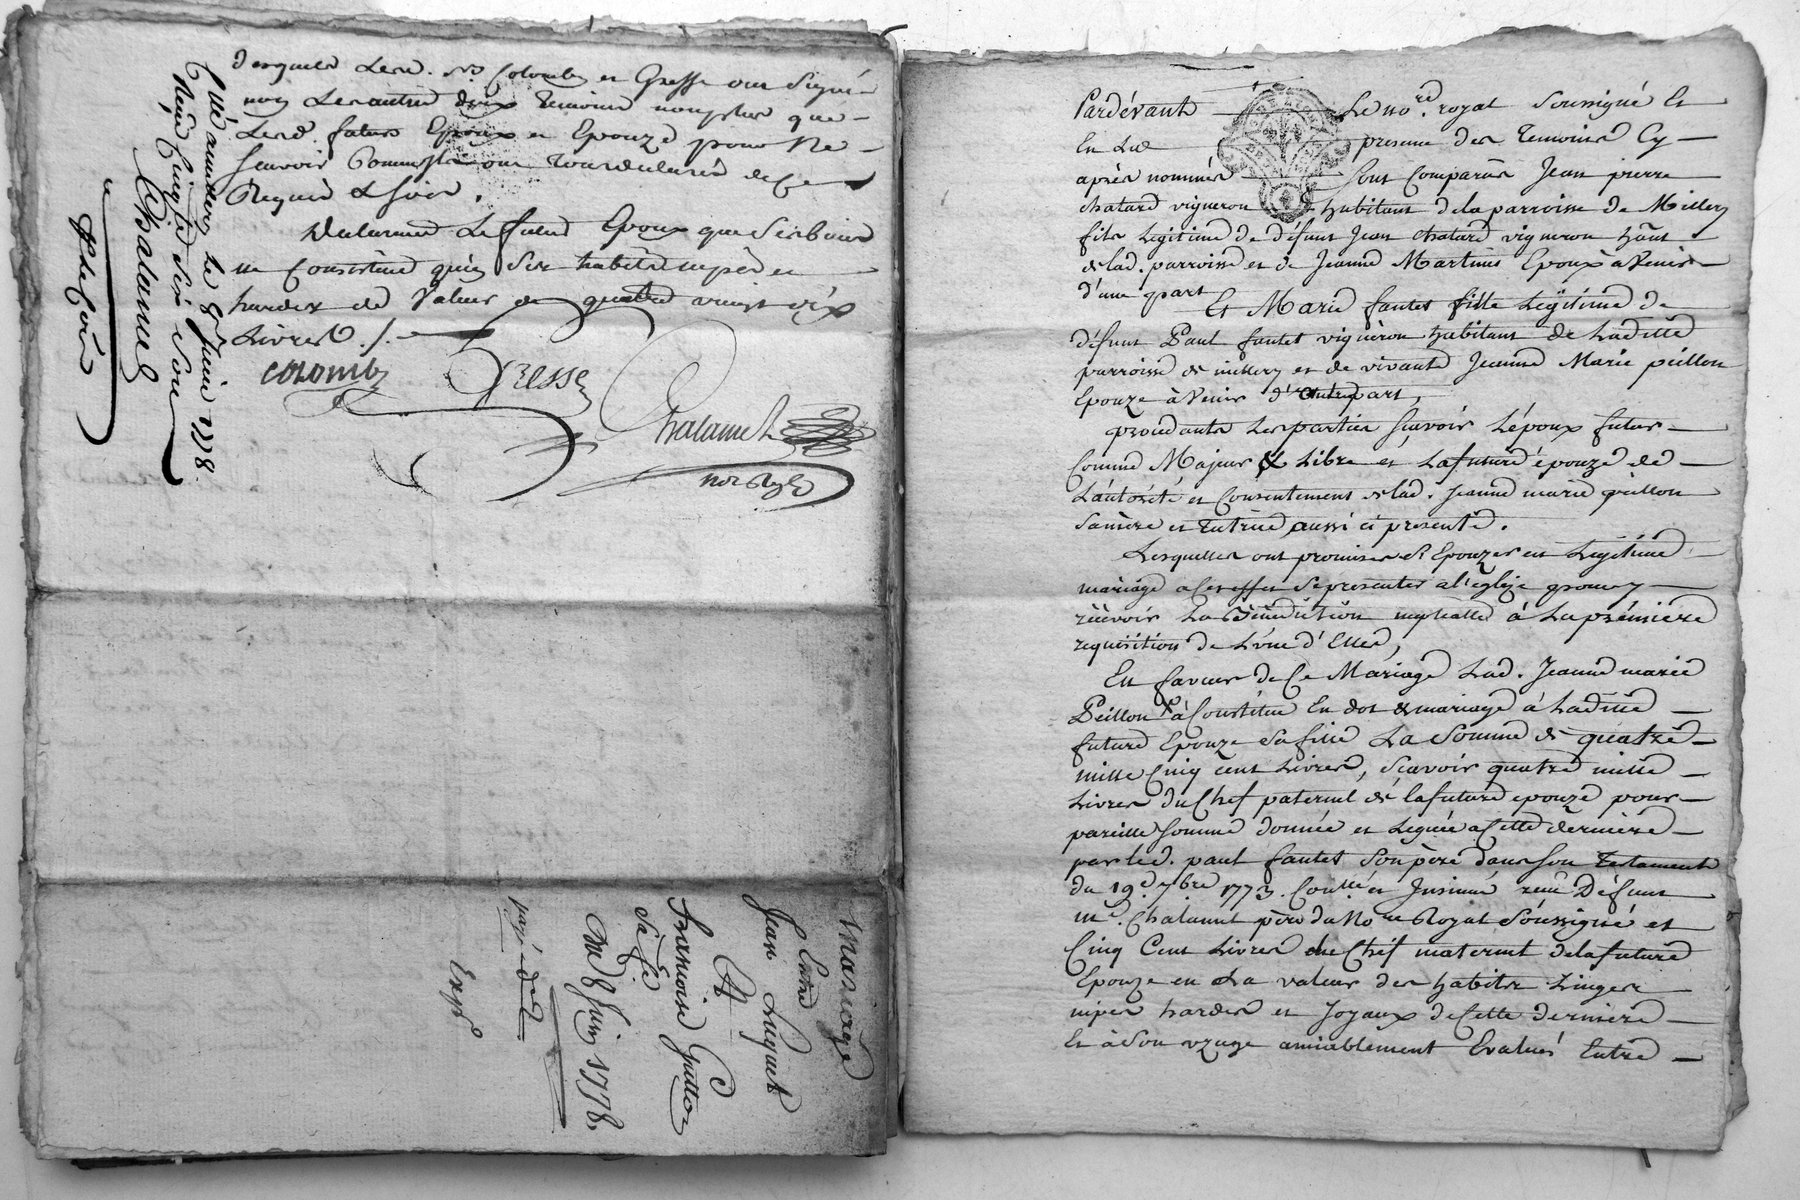 desquels Led. Srs Colomby et Gresse ont signé
non Les autres deux temoins non plus que
Lesd. futurs Epoux et Epouze pour ne
scavoir
Requis et
Declarant Le futur Epoux que
se Constitue
hardes de Valeur de quatre vingt dix
Livres ./.
colomby Gresse
Chalamel
no.re Royal
Cllé a le 8 juin 1778.
Reçu Cinq six sous
Chalamel
Mariage
Entre
Jean Luquet
Et
Françoise Guitton
sa fe
Du 8 Juin 1778.
payé
Expé
Pardévant Le no.re royal soussigné Et
En Lad presence des temoins Cy
aprés nommés Sont Comparûs Jean pierre
chatard vigneron habitant de la parroisse de Millery
fils Legitime de défunt Jean chatard vigneron hânt
de lad. parroisse et de Jeanne Martinis Epoux à Venir
d'une part
Et Marie fantet fille Legitime de
défunt Paul fantet vignêron habitant de Laditte
parroisse de millery et de vivante Jeanne Marie peillon
Epouze à Venir d'autre part,
procédants Les parties scavoir L'époux futur
Comme Majeur & Libre et La future épouze de
L'autorité et Consentement de lad. Jeanne marie peillon
sa mere et tutrice aussi ci presente.
Lesquelles ont promises s'Epouzer en Legitime
mariage a Cet effet se presenter a l'eglize pour y
recevoir La Bénédiction nuptialle à La premiere
requisition de L'une d'Elles,
En faveur de Ce Mariage Lad. Jeanne marie
Peillon à Constitué En dot de mariage à Laditte
future Epouze sa fille La Somme de quatre
mille Cinq cent Livres, Scavoir quatre mille
Livres du Chef paternel de la future epouze pour
pareille Somme donnée et Leguée a Cette derniere
par led. paul fantet Son pere dans son Testament
du 19.e 7bre 1773. Contlé et Insinué reçu Défunt
m.e Chalamel pere du No.re Royal Soussigné et
Cinq Cent Livres du Chef maternel de la future
Epouze en La valeur des habits Linges
nipes hardes et Joyaux de Cette derniere
Et à Son uzage amiablement Evalués Entre